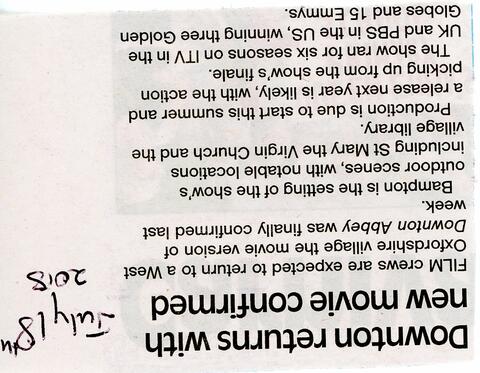 Downton returns with
new movie confirmed
FILM crews are expected to return to a West
Oxfordshire village the movie version of
Downton Abbey was finally confirmed last
week.
Bampton is the setting of the show's
outdoor scenes, with notable locations
including St Mary the Virgin Church and the
village library.
Production is due to start this summer and
a release next year is likely, with the action
picking up from the show's finale.
The show ran for six seasons on ITV in the
UK and PBS in the US, winning three Golden
Globes and 15 Emmys.
July 18th
2018